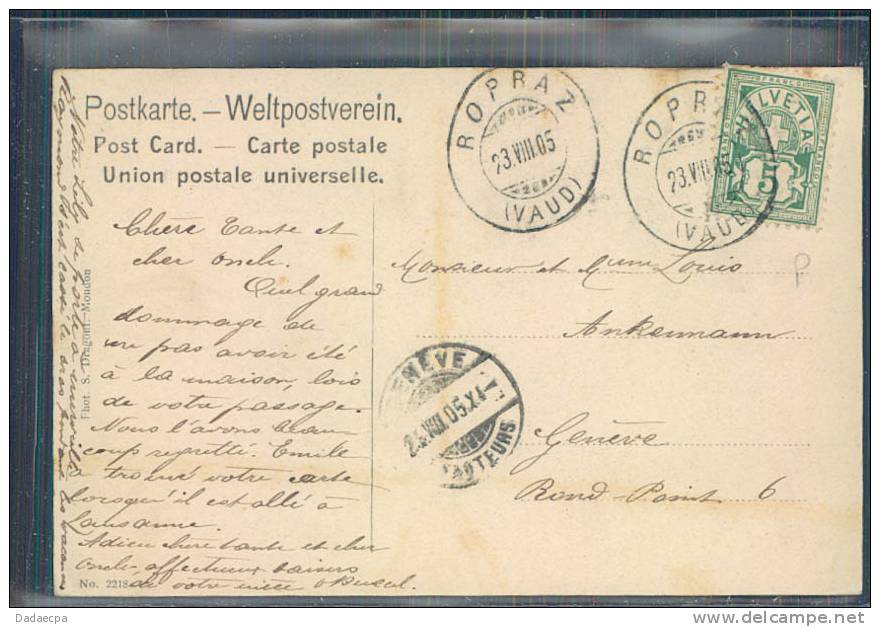 Postkarte. – Weltpostverein.
Post Card. – Carte postale
Union postale universelle.
ROPRAZ
23.VIII.05
(VAUD)
ROPRAZ
23.VIII.05
(VAUD)
HELVETIA
FRANCO
5
Chère tante et
cher oncle.
Quel grand
dommage de
ne pas avoir été
à la maison, lors
de votre passage.
Nous l'avons beau
coup regretté. Emile
a trouvé votre carte
lorsqu'il est allé à
Lausanne.
Adieu chère tante et cher
oncle, affectueux baisers
de votre nièce
Monsieur et Mme Louis
Ankenmann
Genève
Rond-Point 6
GENÈVE
05.XI
FACTEURS
Notre Lily se porte à merveille
Raymond s'est cassé le bras pendant les vacances
Phot. S. Dragoni.-Moudon
No. 2218
P
Dadaecpa
www.delcampe.net